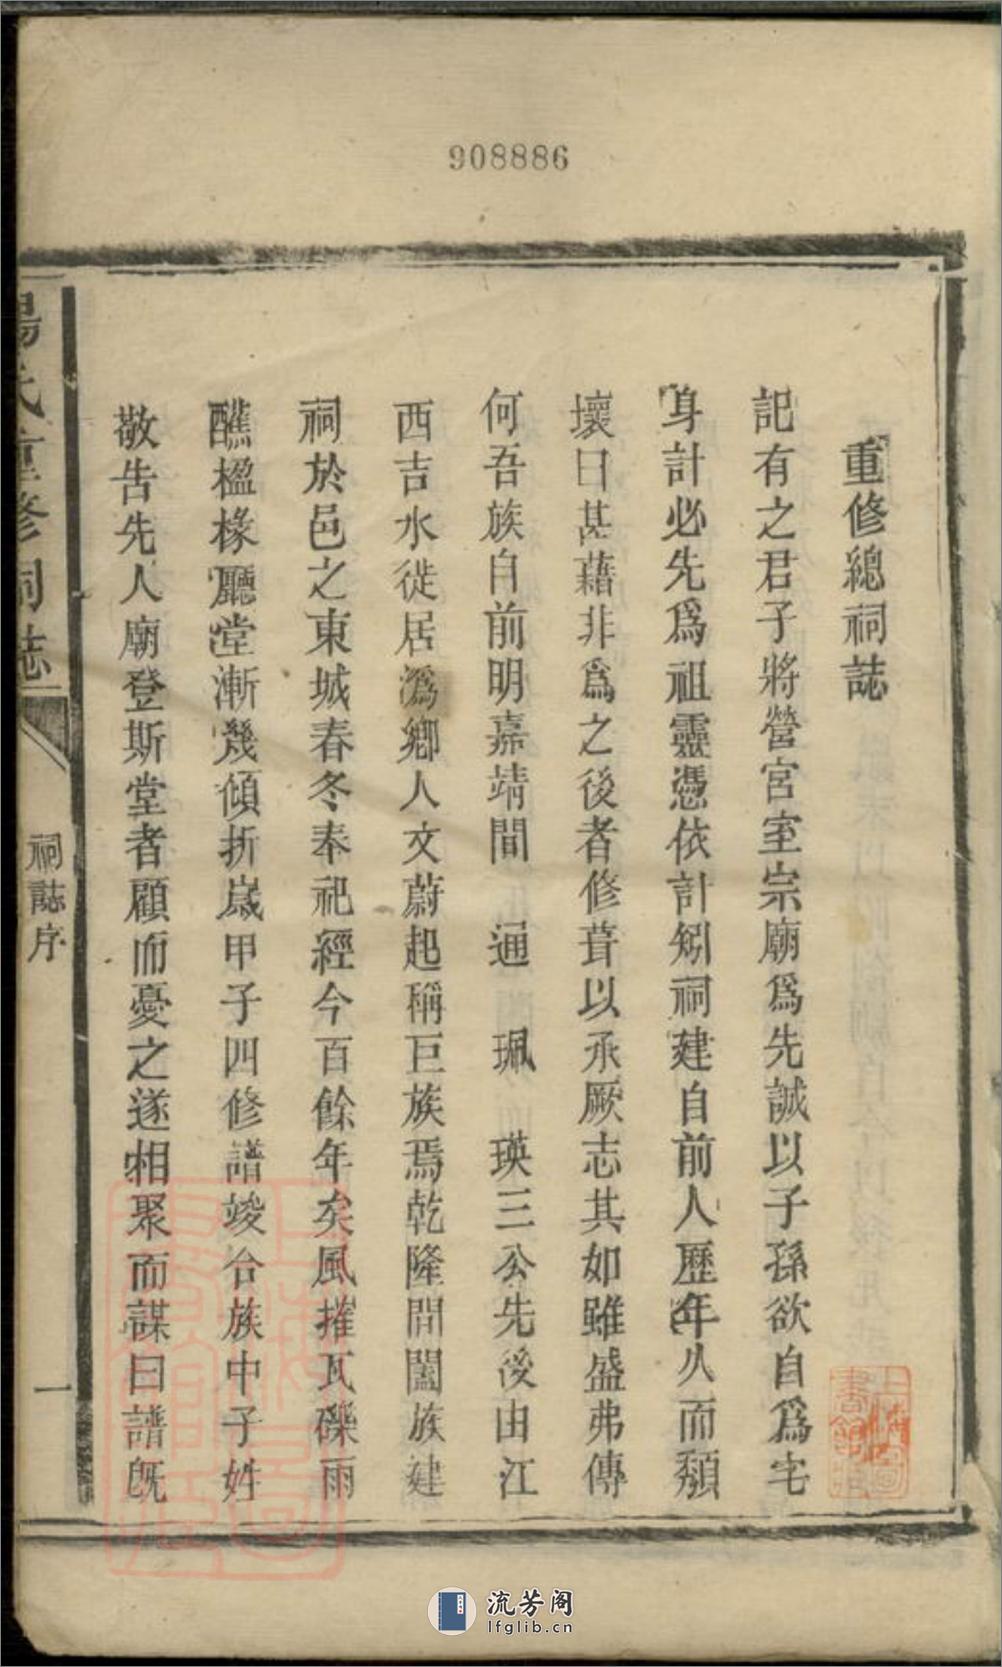 908886
重修總祠誌
記有之君子將營宮室宗廟爲先誠以子孫欲自爲宅
身計必先爲祖靈憑依計矧祠建自前人歷年久而頽
壞曰甚藉非爲之後者修葺以承厥志其如雖盛弗傳
何吾族自前明嘉靖間 通 珮 瑛三公先後由江
西吉水徙居溈鄉人文蔚起稱巨族焉乾隆間闔族建
祠於邑之東城春冬奉祀經今百餘年矣風摧瓦礫雨
醮楹椽廳堂漸幾傾折歲甲子四修譜竣合族中子姓
敬告先人廟登斯堂者顧而憂之遂相聚而謀曰譜旣
氏重修祠誌
祠誌序
一
上海圖書館藏
流芳阁
lfglib.cn